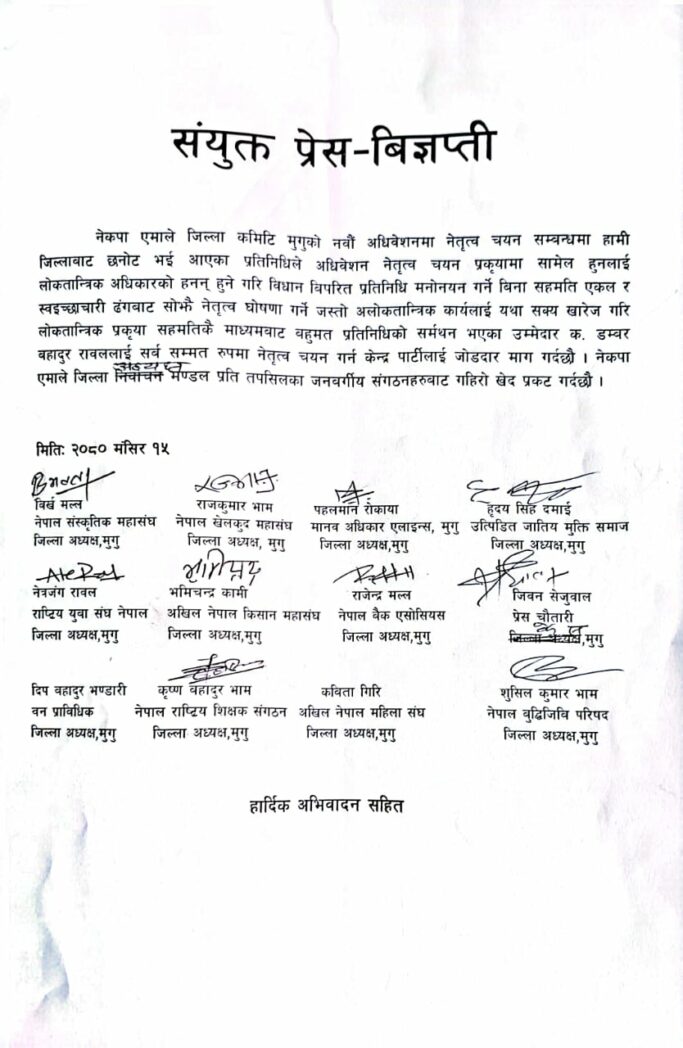 संयुक्त प्रेस-बिज्ञप्ती
नेकपा एमाले जिल्ला कमिटि मुगुको नवौं अधिवेशनमा नेतृत्व चयन सम्बन्धमा हामी
जिल्लाबाट छनोट भई आएका प्रतिनिधिले अधिवेशन नेतृत्व चयन प्रकृयामा सामेल हुनलाई
लोकतान्त्रिक अधिकारको हनन् हुने गरि विधान विपरित प्रतिनिधि मनोनयन गर्ने बिना सहमति एकल र
स्वइच्छाचारी ढंगबाट सोझै नेतृत्व घोषणा गर्ने जस्तो अलोकतान्त्रिक कार्यलाई यथा सक्य खारेज गरि
लोकतान्त्रिक प्रकृया सहमतिकै माध्यमवाट वहुमत प्रतिनिधिको सर्मथन भएका उम्मेदार क. डम्वर
बहादुर रावललाई सर्व सम्मत रुपमा नेतृत्व चयन गर्न केन्द्र पार्टीलाई जोडदार माग गर्दछौ । नेकपा
एमाले जिल्ला निर्वाचन मण्डल प्रति तपसिलका जनवर्गीय संगठनहरुवाट गहिरो खेद प्रकट गर्दछौ ।
मितिः २०८० मंसिर १५
विर्ख मल्ल राजकुमार भाम पहलमान रोकाया हृदय सिंह दमाई
नेपाल संस्कृतिक महासंघ नेपाल खेलकुद महासंघ मानव अधिकार एलाइन्स, मुगु उत्पिडित जातिय मुक्ति समाज
जिल्ला अध्यक्ष,मुगु जिल्ला अध्यक्ष, मुगु जिल्ला अध्यक्ष,मुगु जिल्ला अध्यक्ष,मुगु
नेत्रजंग रावल भमिचन्द्र कामी राजेन्द्र मल्ल जिवन सेजुवाल
राष्ट्रिय युवा संघ नेपाल अखिल नेपाल किसान महासंघ नेपाल वैक एसोसियस प्रेस चौतारी
जिल्ला अध्यक्ष,मुगु जिल्ला अध्यक्ष,मुगु जिल्ला अध्यक्ष,मुगु जिल्ला अध्यक्ष,मुगु
दिप वहादुर भण्डारी कृष्ण बहादुर भाम कविता गिरि शुसिल कुमार भाम
वन प्राविधिक नेपाल राष्ट्रिय शिक्षक संगठन अखिल नेपाल महिला संघ नेपाल वुद्धिजिवि परिषद
जिल्ला अध्यक्ष,मुगु जिल्ला अध्यक्ष,मुगु जिल्ला अध्यक्ष,मुगु जिल्ला अध्यक्ष,मुगु
हार्दिक अभिवादन सहित